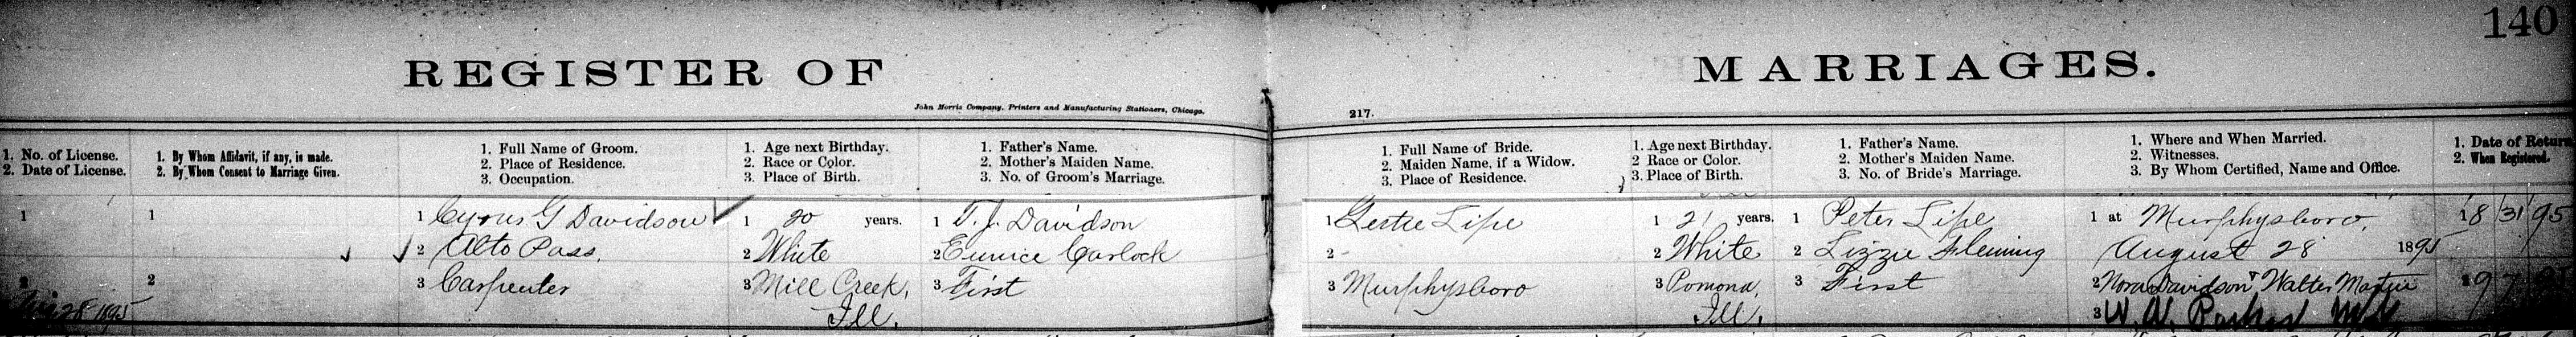 140
REGISTER OF MARRIAGES.
John Morris Company, Printers and Manufacturing Stationers, Chicago.
217.
1. No. of License.
2. Date of License.
1. By Whom Affidavit, if any, is made.
2. By Whom Consent to Marriage Given.
1. Full Name of Groom.
2. Place of Residence.
3. Occupation.
1. Age next Birthday.
2. Race or Color.
3. Place of Birth.
1. Father's Name.
2. Mother's Maiden Name.
3. No. of Groom's Marriage.
1. Full Name of Bride.
2. Maiden Name, if a Widow.
3. Place of Residence.
1. Age next Birthday.
2 Race or Color.
3. Place of Birth.
1. Father's Name.
2. Mother's Maiden Name.
3. No. of Bride's Marriage.
1. Where and When Married.
2. Witnesses.
3. By Whom Certified, Name and Office.
1. Date of Return
2. When Registered.
1
2
Aug 28 1895
1
2
1 Cyrus G Davidson
2 Alto Pass,
3 Carpenter
1 20 years.
2 White
3 Mill Creek,
Ill.
1 T. J. Davidson
2 Eunice Carlock
3 First
1 Gertie Lipe
2 -
3 Murphysboro
1 21 years.
2 White
3 Pomona,
Ill.
1 Peter Lipe
2 Lizzie Fleming
3 First
1 at Murphysboro,
August 28 1895
2 Nora Davidson & Walter Martin
3 W. W.
1 8/31/95
2 9/7